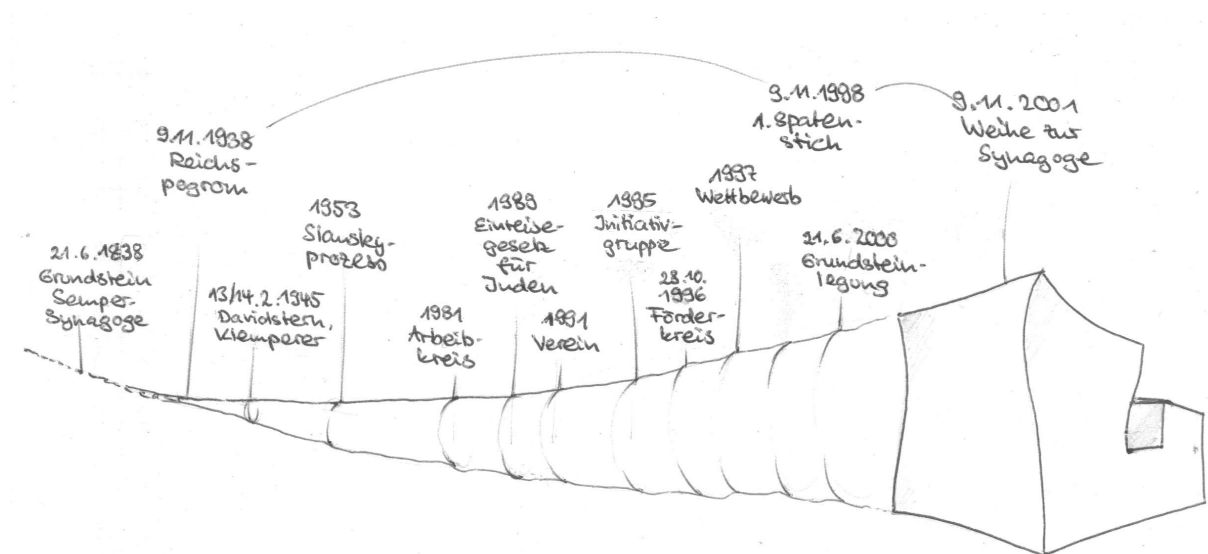 21.6.1838
Grundstein
Semper-
Synagoge
9.11.1938
Reichs-
pogrom
13/14.2.1945
Davidstern,
Klemperer
1953
Slansky-
prozess
1981
Arbeits-
kreis
1989
Einreise-
gesetz
für
Juden
1991
Verein
1995
Initiativ-
gruppe
28.10.
1996
Förder-
kreis
1997
Wettbewerb
9.11.1998
1. Spaten-
stich
21.6.2000
Grundstein-
legung
9.11.2001
Weihe zur
Synagoge